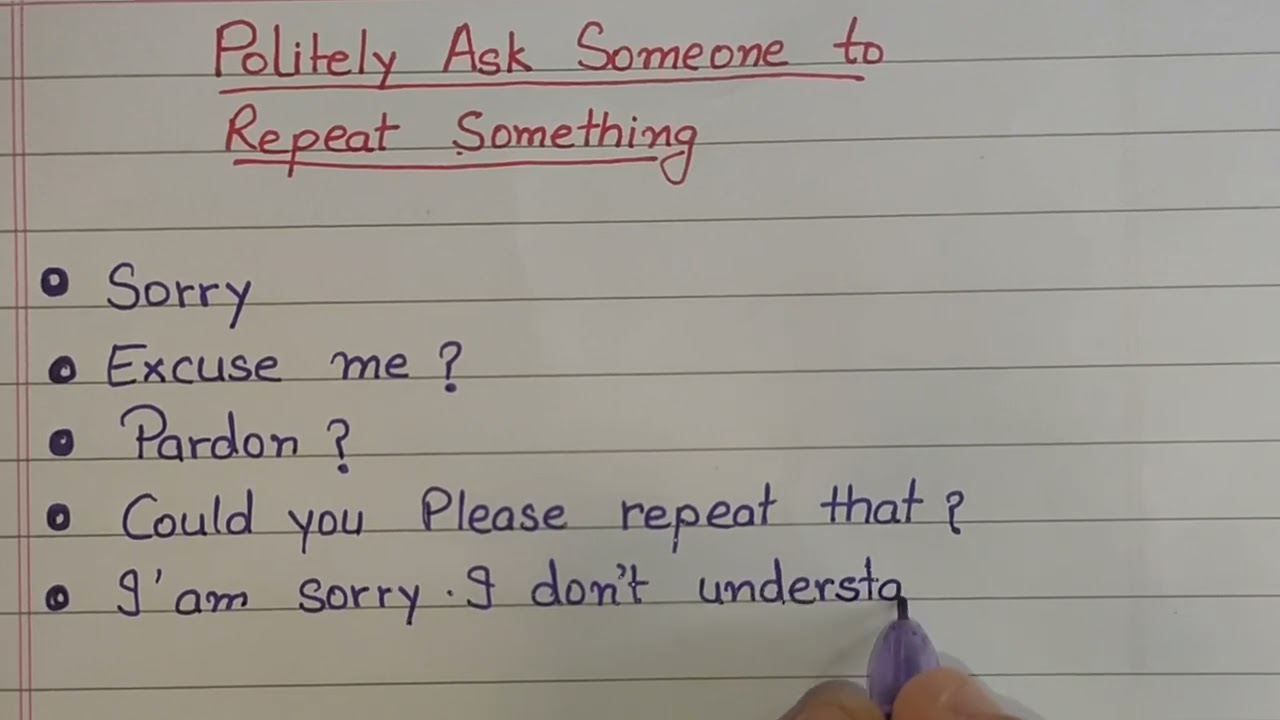 Politely Ask Someone to
Repeat Something
Sorry
Excuse me?
Pardon?
Could you Please repeat that?
I'am sorry. I don't understa